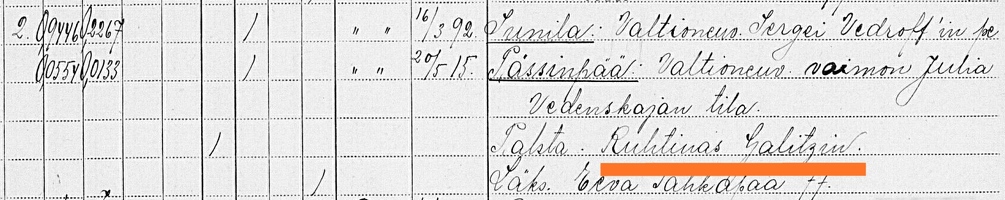 2. 0,9446 0,2267 / " " 16/3 92. Sunila: Valtioneuv. Sergei Vedroff'in pe
0,0554 0,0133 / " " 20/5 15. Pässinpää: Valtioneuv. vaimon Julia
Vedenskajan tila.
/ Palsta. Ruhtinas Galitzin.
/ Läks. Eeva